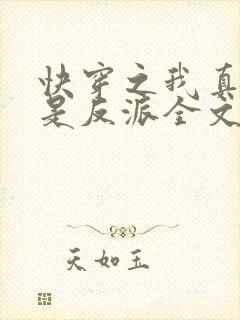 快穿之我真
是反派全文
天如玉